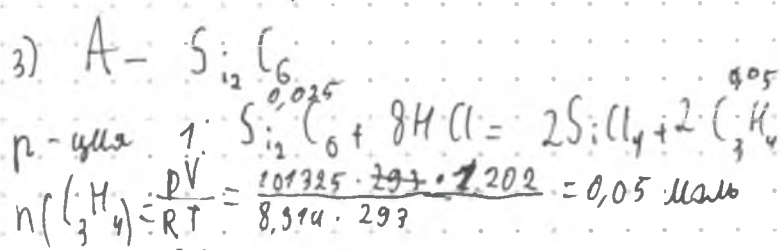 3) A - Si₂C₆
0,025 0,05
р-ция 1: Si₂C₆ + 8HCl = 2SiCl₄ + 2C₃H₄
n(C₃H₄) = pV/RT = 101325 · 1,202 / 8,314 · 293 = 0,05 моль